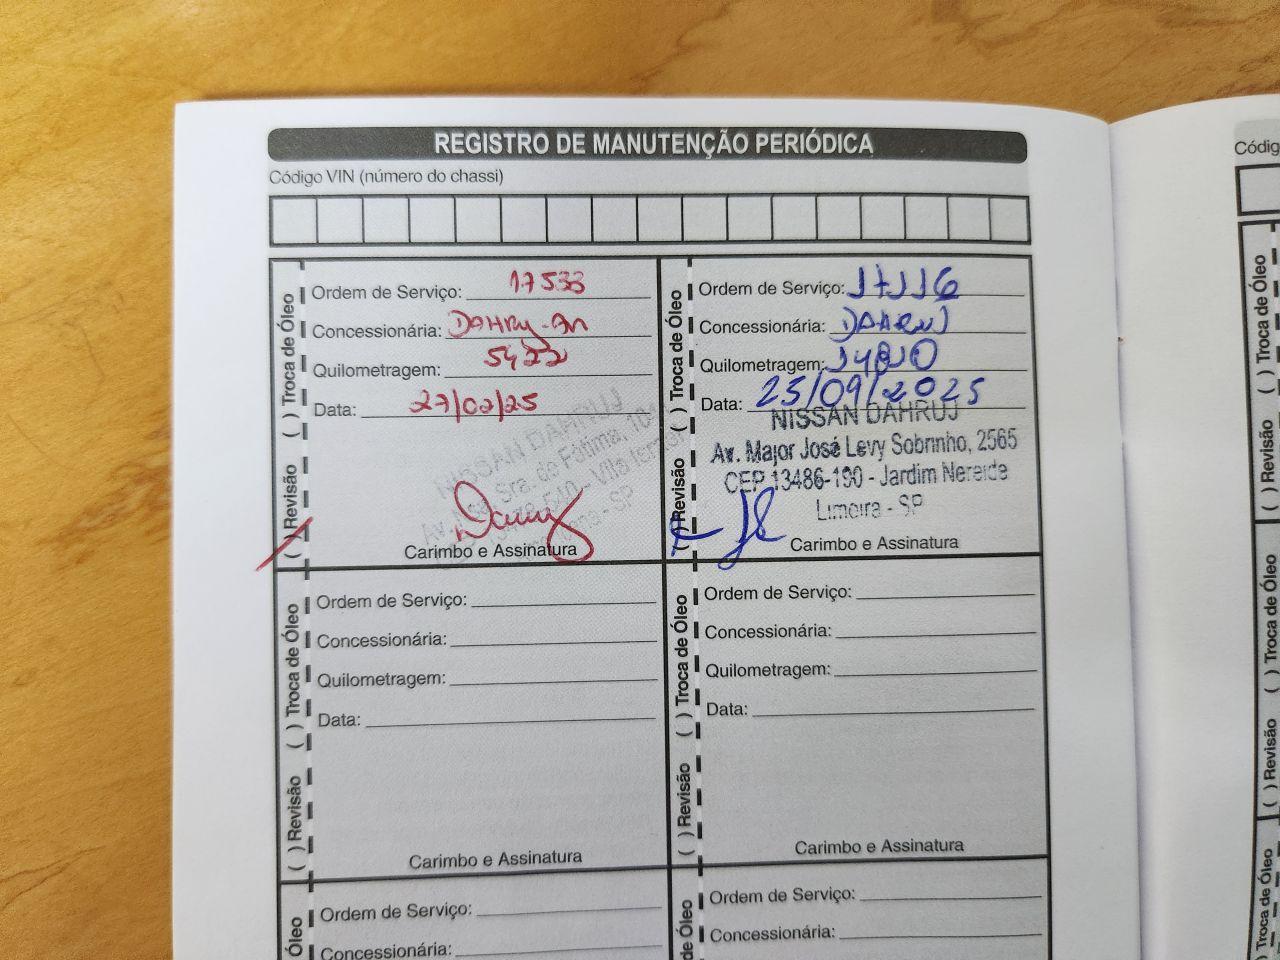 REGISTRO DE MANUTENÇÃO PERIÓDICA
Código VIN (número do chassi)
( ) Revisão ( ) Troca de Óleo
Ordem de Serviço: 17533
Concessionária:
Quilometragem: 5422
Data: 27/02/25
NISSAN DAHRUJ
Sra. de Fátima,
Av.
- SP
Carimbo e Assinatura
( ) Revisão ( ) Troca de Óleo
Ordem de Serviço:
Concessionária: DAHRUJ
Quilometragem:
Data: 25/09/2025
NISSAN DAHRUJ
Av. Major José Levy Sobrinho, 2565
CEP 13486-190 - Jardim Nereide
Limeira - SP
Carimbo e Assinatura
( ) Revisão ( ) Troca de Óleo
Ordem de Serviço:
Concessionária:
Quilometragem:
Data:
Carimbo e Assinatura
( ) Revisão ( ) Troca de Óleo
Ordem de Serviço:
Concessionária:
Quilometragem:
Data:
Carimbo e Assinatura
Óleo
Ordem de Serviço:
Concessionária:
de Óleo
Ordem de Serviço:
Concessionária:
Códig
( ) Revisão ( ) Troca de Óleo
( ) Revisão ( ) Troca de Óleo
Troca de Óleo